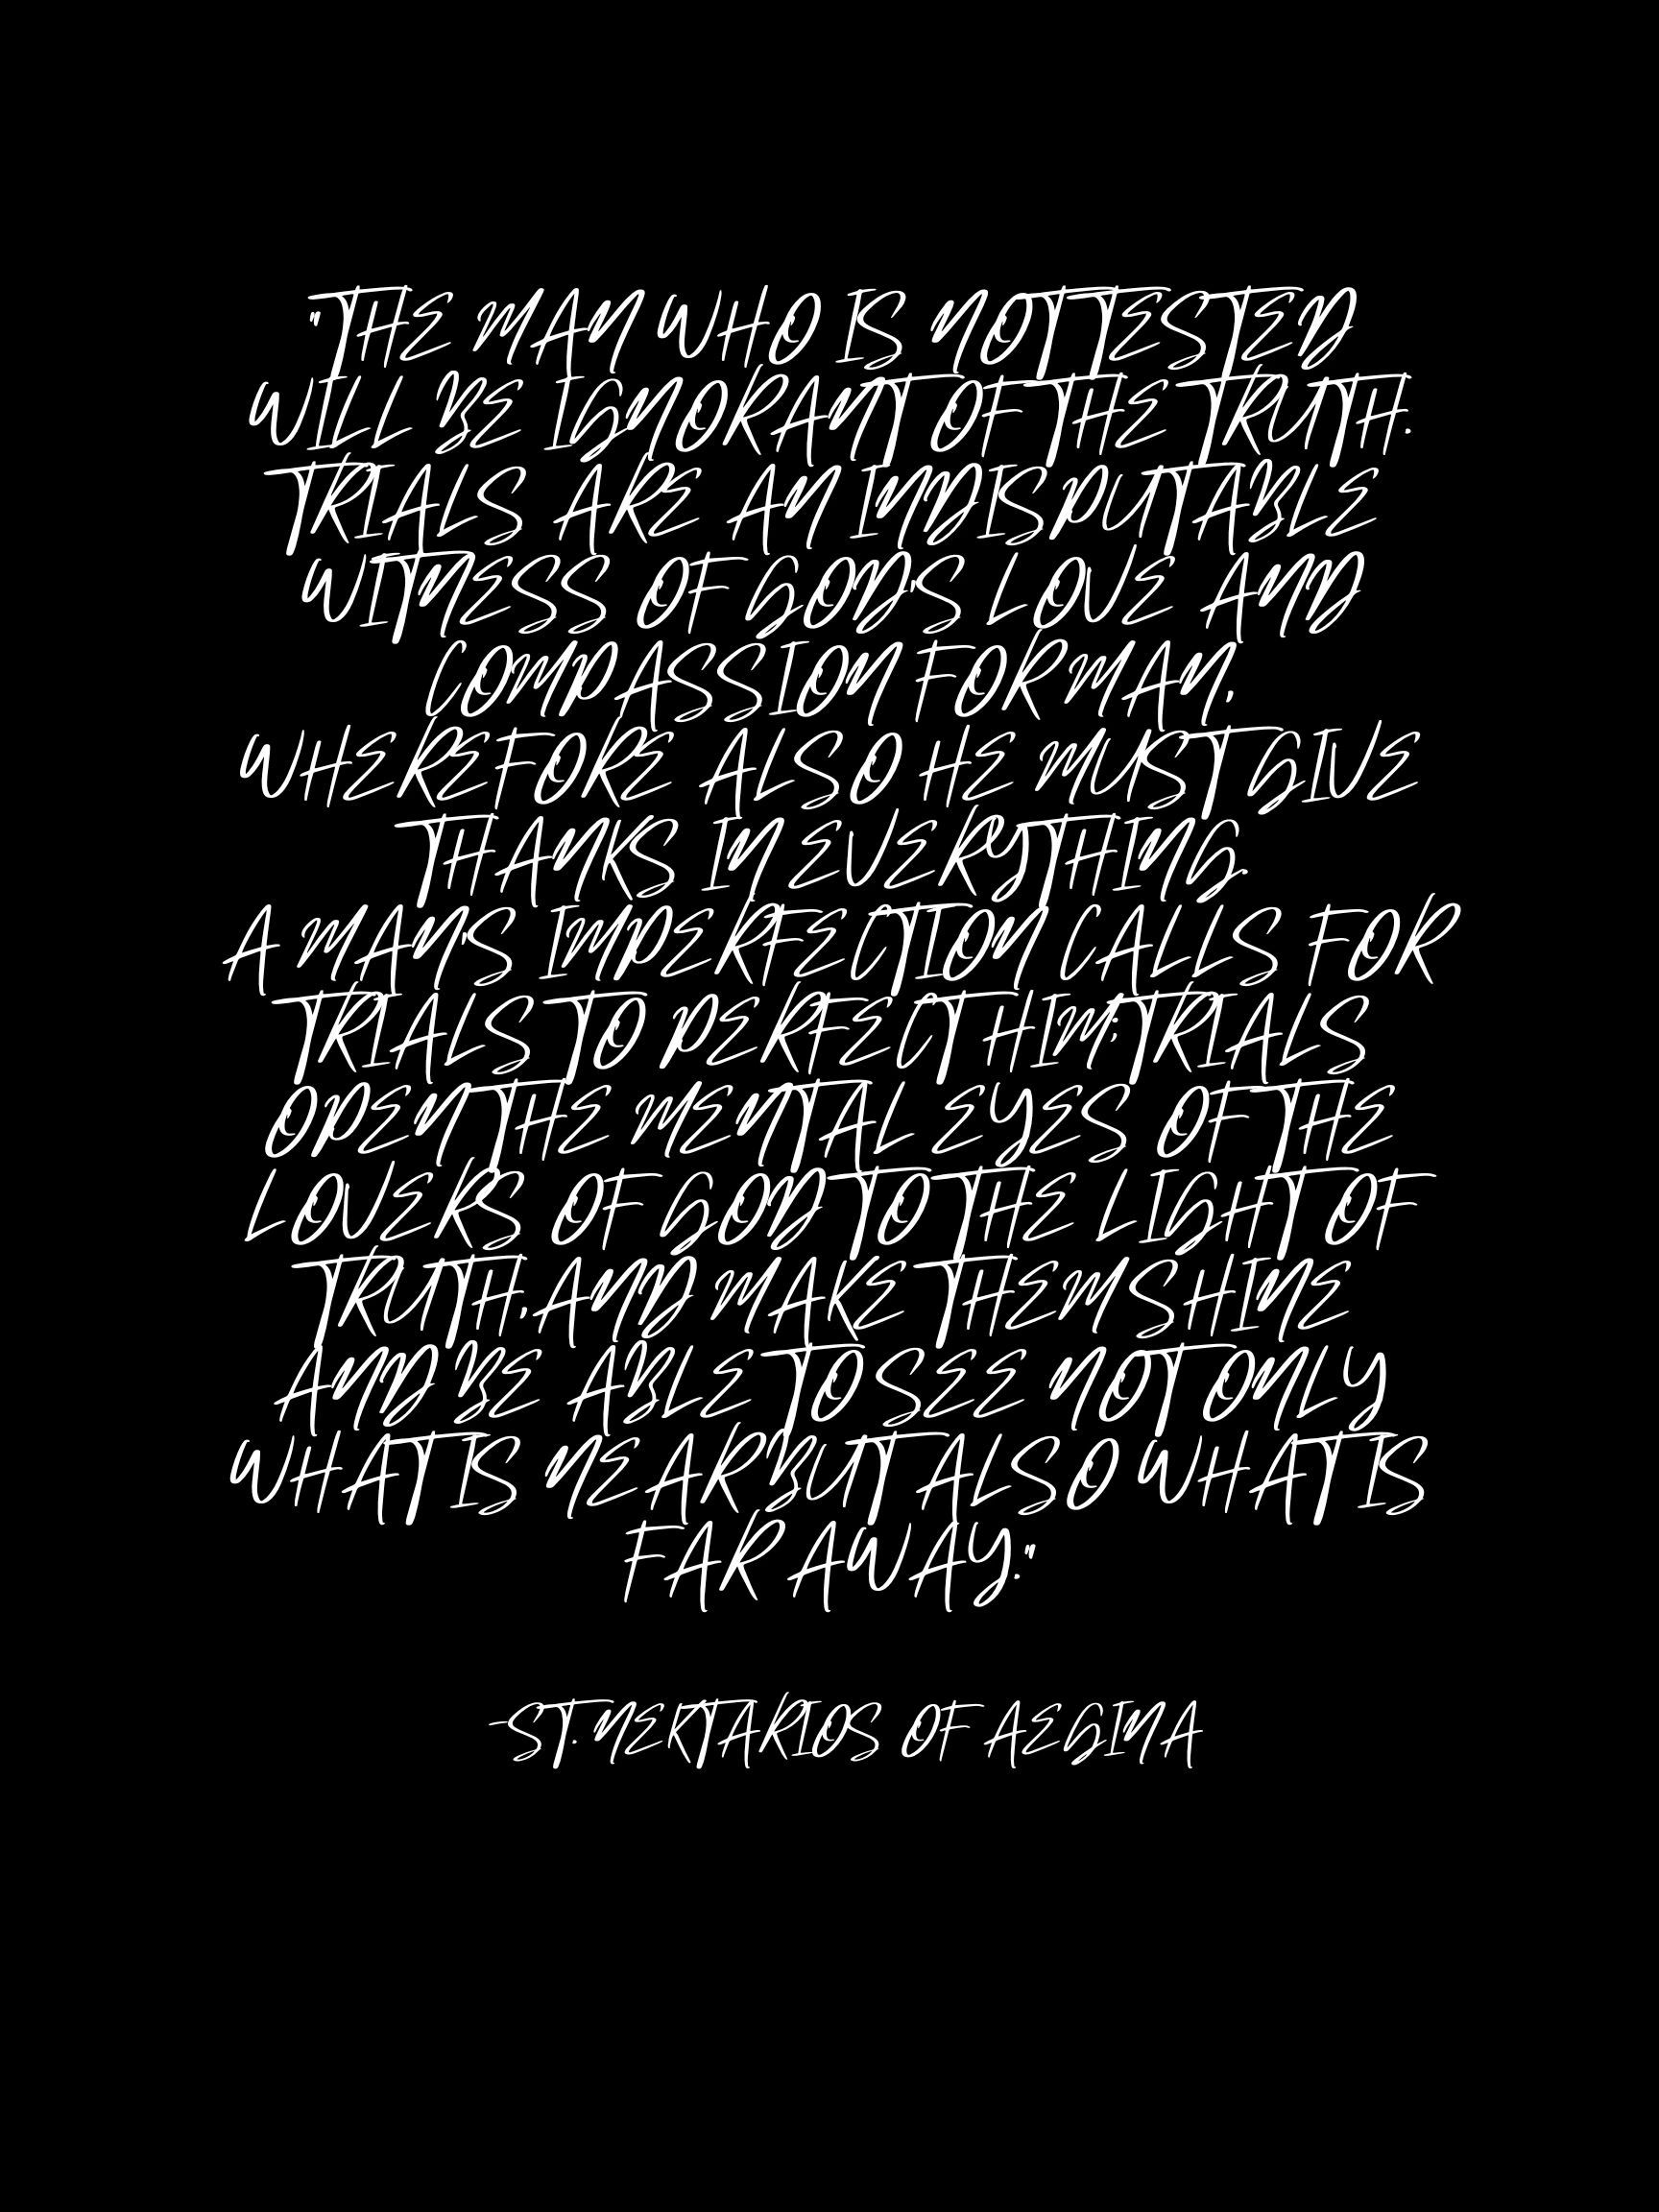 "THE MAN WHO IS NOT TESTED
WILL BE IGNORANT OF THE TRUTH.
TRIALS ARE AN INDISPUTABLE
WITNESS OF GOD'S LOVE AND
COMPASSION FOR MAN;
WHEREFORE ALSO HE MUST GIVE
THANKS IN EVERYTHING.
A MAN'S IMPERFECTION CALLS FOR
TRIALS TO PERFECT HIM; TRIALS
OPEN THE MENTAL EYES OF THE
LOVERS OF GOD TO THE LIGHT OF
TRUTH, AND MAKE THEM SHINE
AND BE ABLE TO SEE NOT ONLY
WHAT IS NEAR BUT ALSO WHAT IS
FAR AWAY."
-ST. NEKTARIOS OF AEGINA